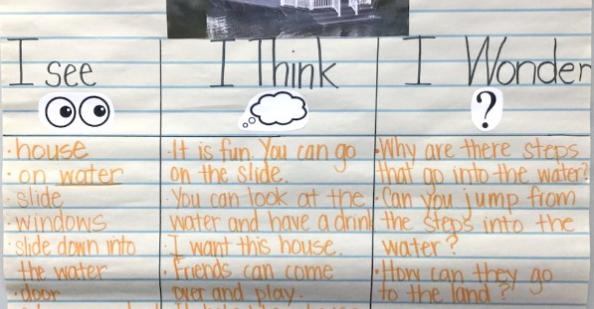 I see
· house
· on water
· slide
· windows
· slide down into
the water
· door
I Think
· It is fun. You can go
on the slide.
· You can look at the
water and have a drink
· I want this house.
· Friends can come
over and play.
I Wonder
?
· Why are there steps
that go into the water?
· Can you jump from
the steps into the
water?
· How can they go
to the land?